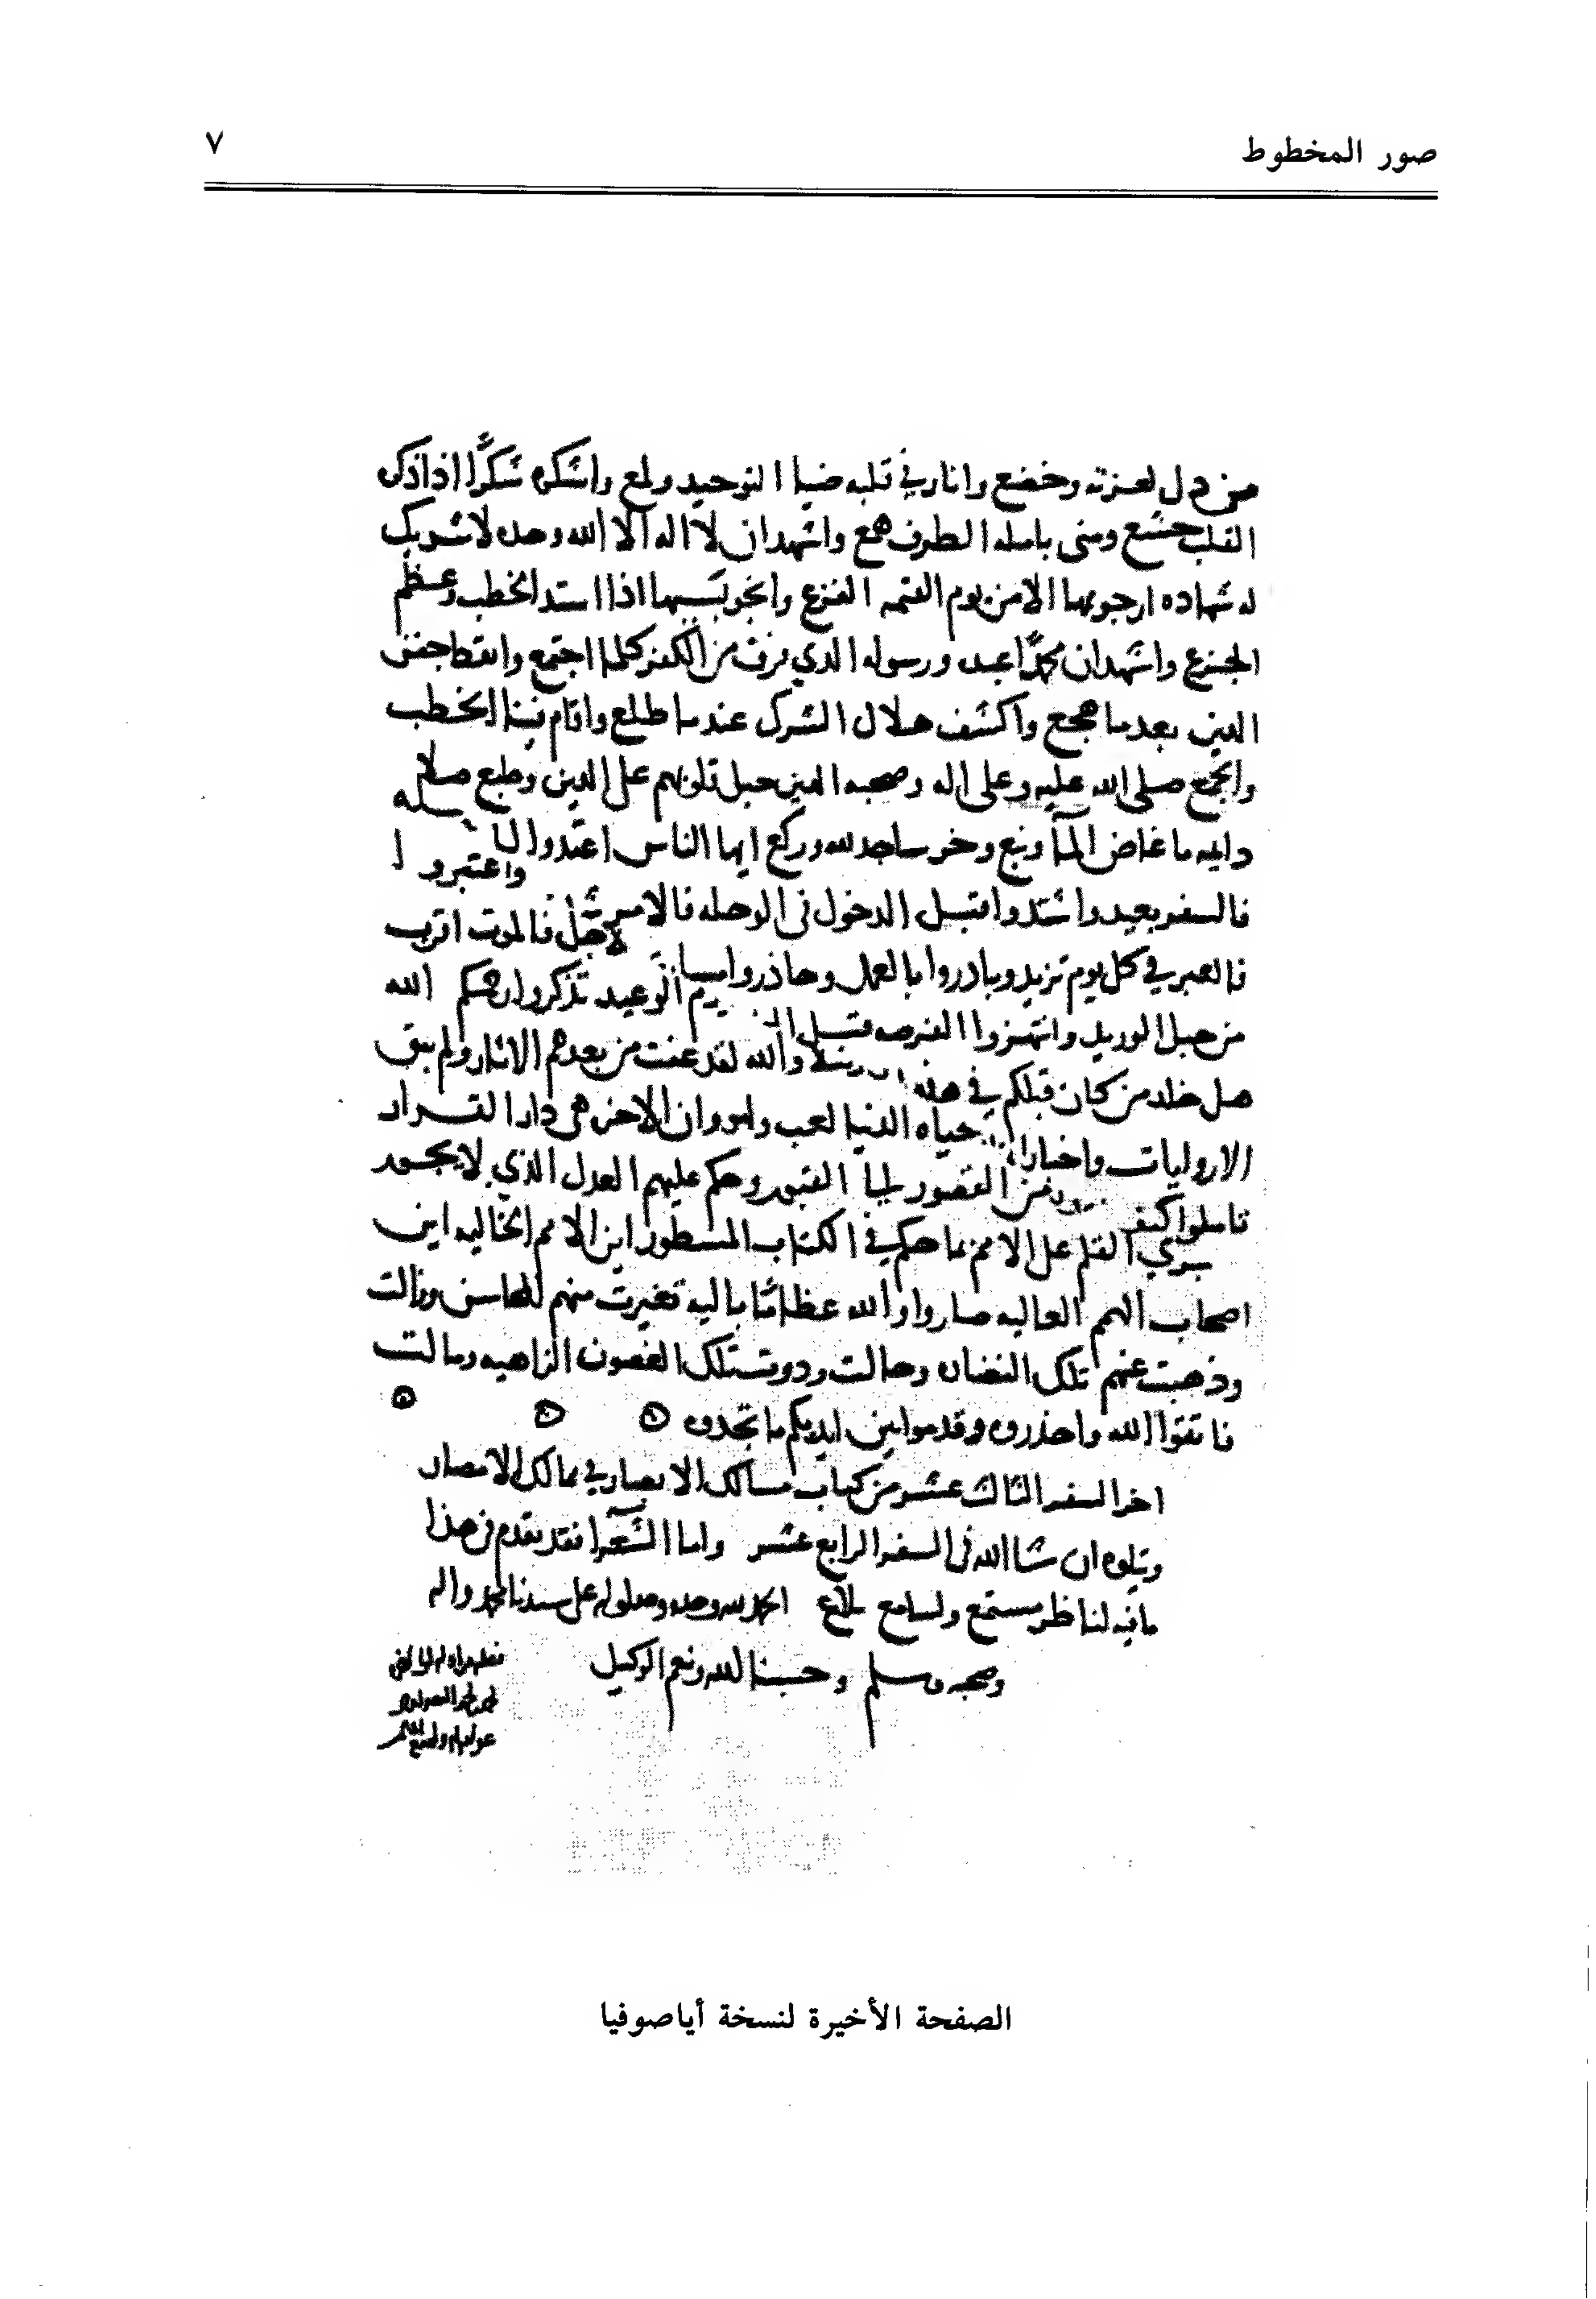 صور المخطوط
٧
من ذل لعزته وخضع وانار في قلبه ضيا التوحيد ولمع واشكره شكرًا اذا ذكر
القلب خشع ومتى ياسله الطرف همع واشهد ان لا اله الا الله وحده لا شريك
له شهاده ارجو بها الامن يوم الفزع وانجو بسببها اذا اشتد الخطب وعظم
الجزع واشهد ان محمدًا عبده ورسوله الذي فرق من الكفر كلما اجتمع وايقظ جفن
الدين بعد ما هجع واكسف هلال الشرك عندما طلع واقام فينا الخطب
والجمع صلى الله عليه وعلى اله وصحبه الذين جبل قلوبهم على الدين وطبع صلاه
دايمه ما غاض الما ونبع وخر ساجد لله وركع ايها الناس اعتدوا
واعتبروا
فالسفر بعيد واستعدوا قبل الدخول في الوحله فالامر
فالعبر في كل يوم تزيد وبادروا بالعمل وحاذروا الاجل فالموت اقرب
من حبل الوريد وانتهزوا الفرصه قبل الوعيد تذكروا رحمكم الله
هل خلد من كان قبلكم في هذه والله لقد عفت من بعدهم الاثار ولم يبق
الا روايات واخبار حياه الدنيا لعب ولهو وان الاخره هي دار القرار
تاملوا كيف من القصور الى القبور وحكم عليهم العدل الذي لا يجور
القلم على الامم بما حكم في الكتاب المسطور اين الامم الخاليه اين
اصحاب الهمم العاليه صاروا والله عظامًا باليه تغيرت منهم المحاسن وزالت
وذهبت عنهم تلك النضاره وحالت وذوت تلك الغصون الزاهيه ومالت
فاتقوا الله واحذروه وقدموا بين ايديكم ما تجدوه
اخر السفر الثالث عشر من كتاب مسالك الابصار في ممالك الامصار
ويتلوه ان شا الله في السفر الرابع عشر واما الشعرا فقد تقدم من هذا
ما فيه لناظر مستمتع ولسامع بلاغ الحمد لله وحده وصلواته على سيدنا محمد واله
وصحبه وسلم وحسبنا الله ونعم الوكيل
الصفحة الأخيرة لنسخة أياصوفيا